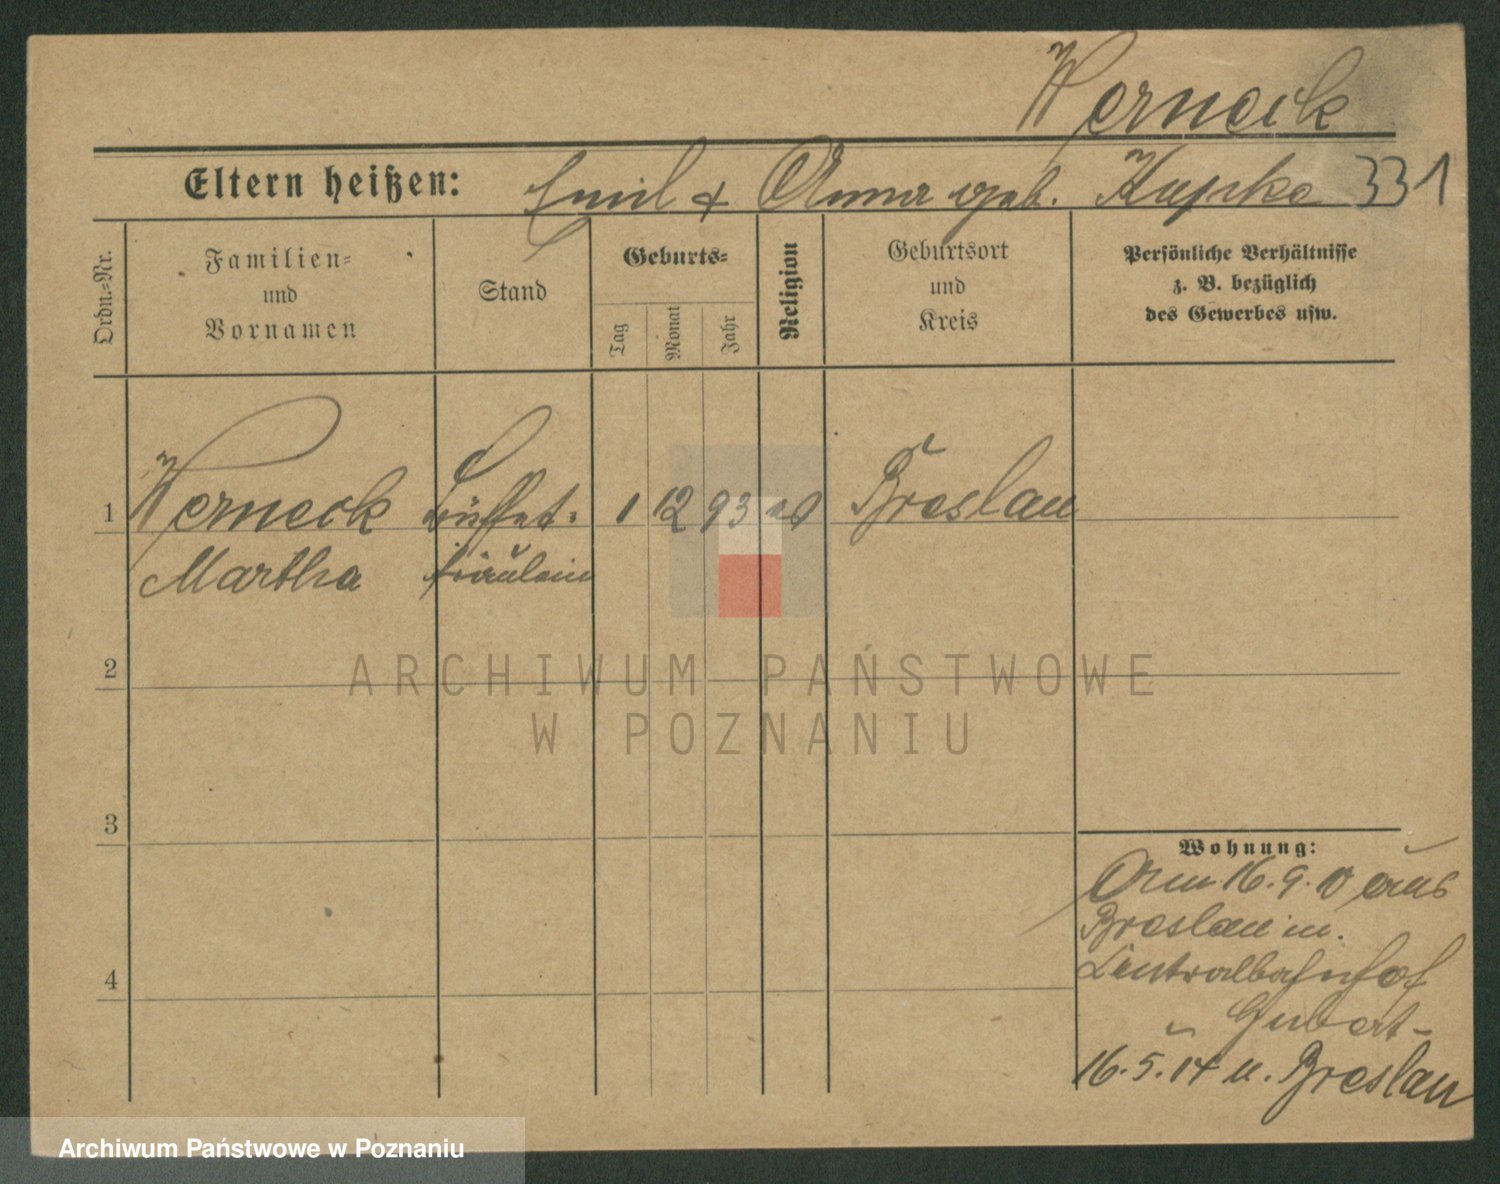 Werneck
Eltern heißen: Emil & Anna geb. Kupke 331
Ordn.-Nr.
Familien-
und
Vornamen
Stand
Geburts-
Tag
Monat
Jahr
Religion
Geburtsort
und
Kreis
Persönliche Verhältnisse
z. B. bezüglich
des Gewerbes usw.
1 Werneck Büffet- 1 12 93 Breslau
Martha fräulein
2
3
4
Wohnung:
16.9. aus
Breslau in.
Centralbahnhof
16.5.14 n. Breslau
ARCHIWUM PAŃSTWOWE
W POZNANIU
Archiwum Państwowe w Poznaniu